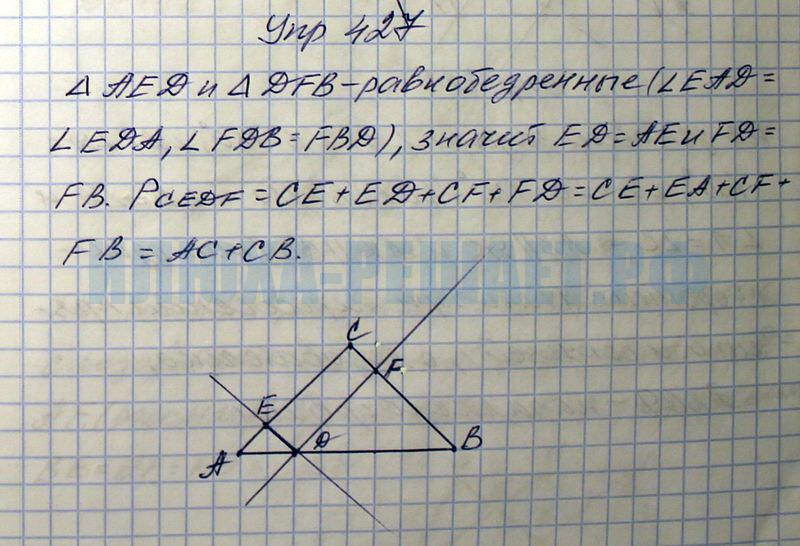 Упр 427
△ AED и △ DFB - равнобедренные (∠EAD =
∠EDA, ∠FDB = FBD), значит ED = AE и FD =
FB. PCEDF = CE + ED + CF + FD = CE + EA + CF +
FB = AC + CB.
ИЛЬЮХА-РЕШАЕТ.РФ
C
F
E
A
D
B